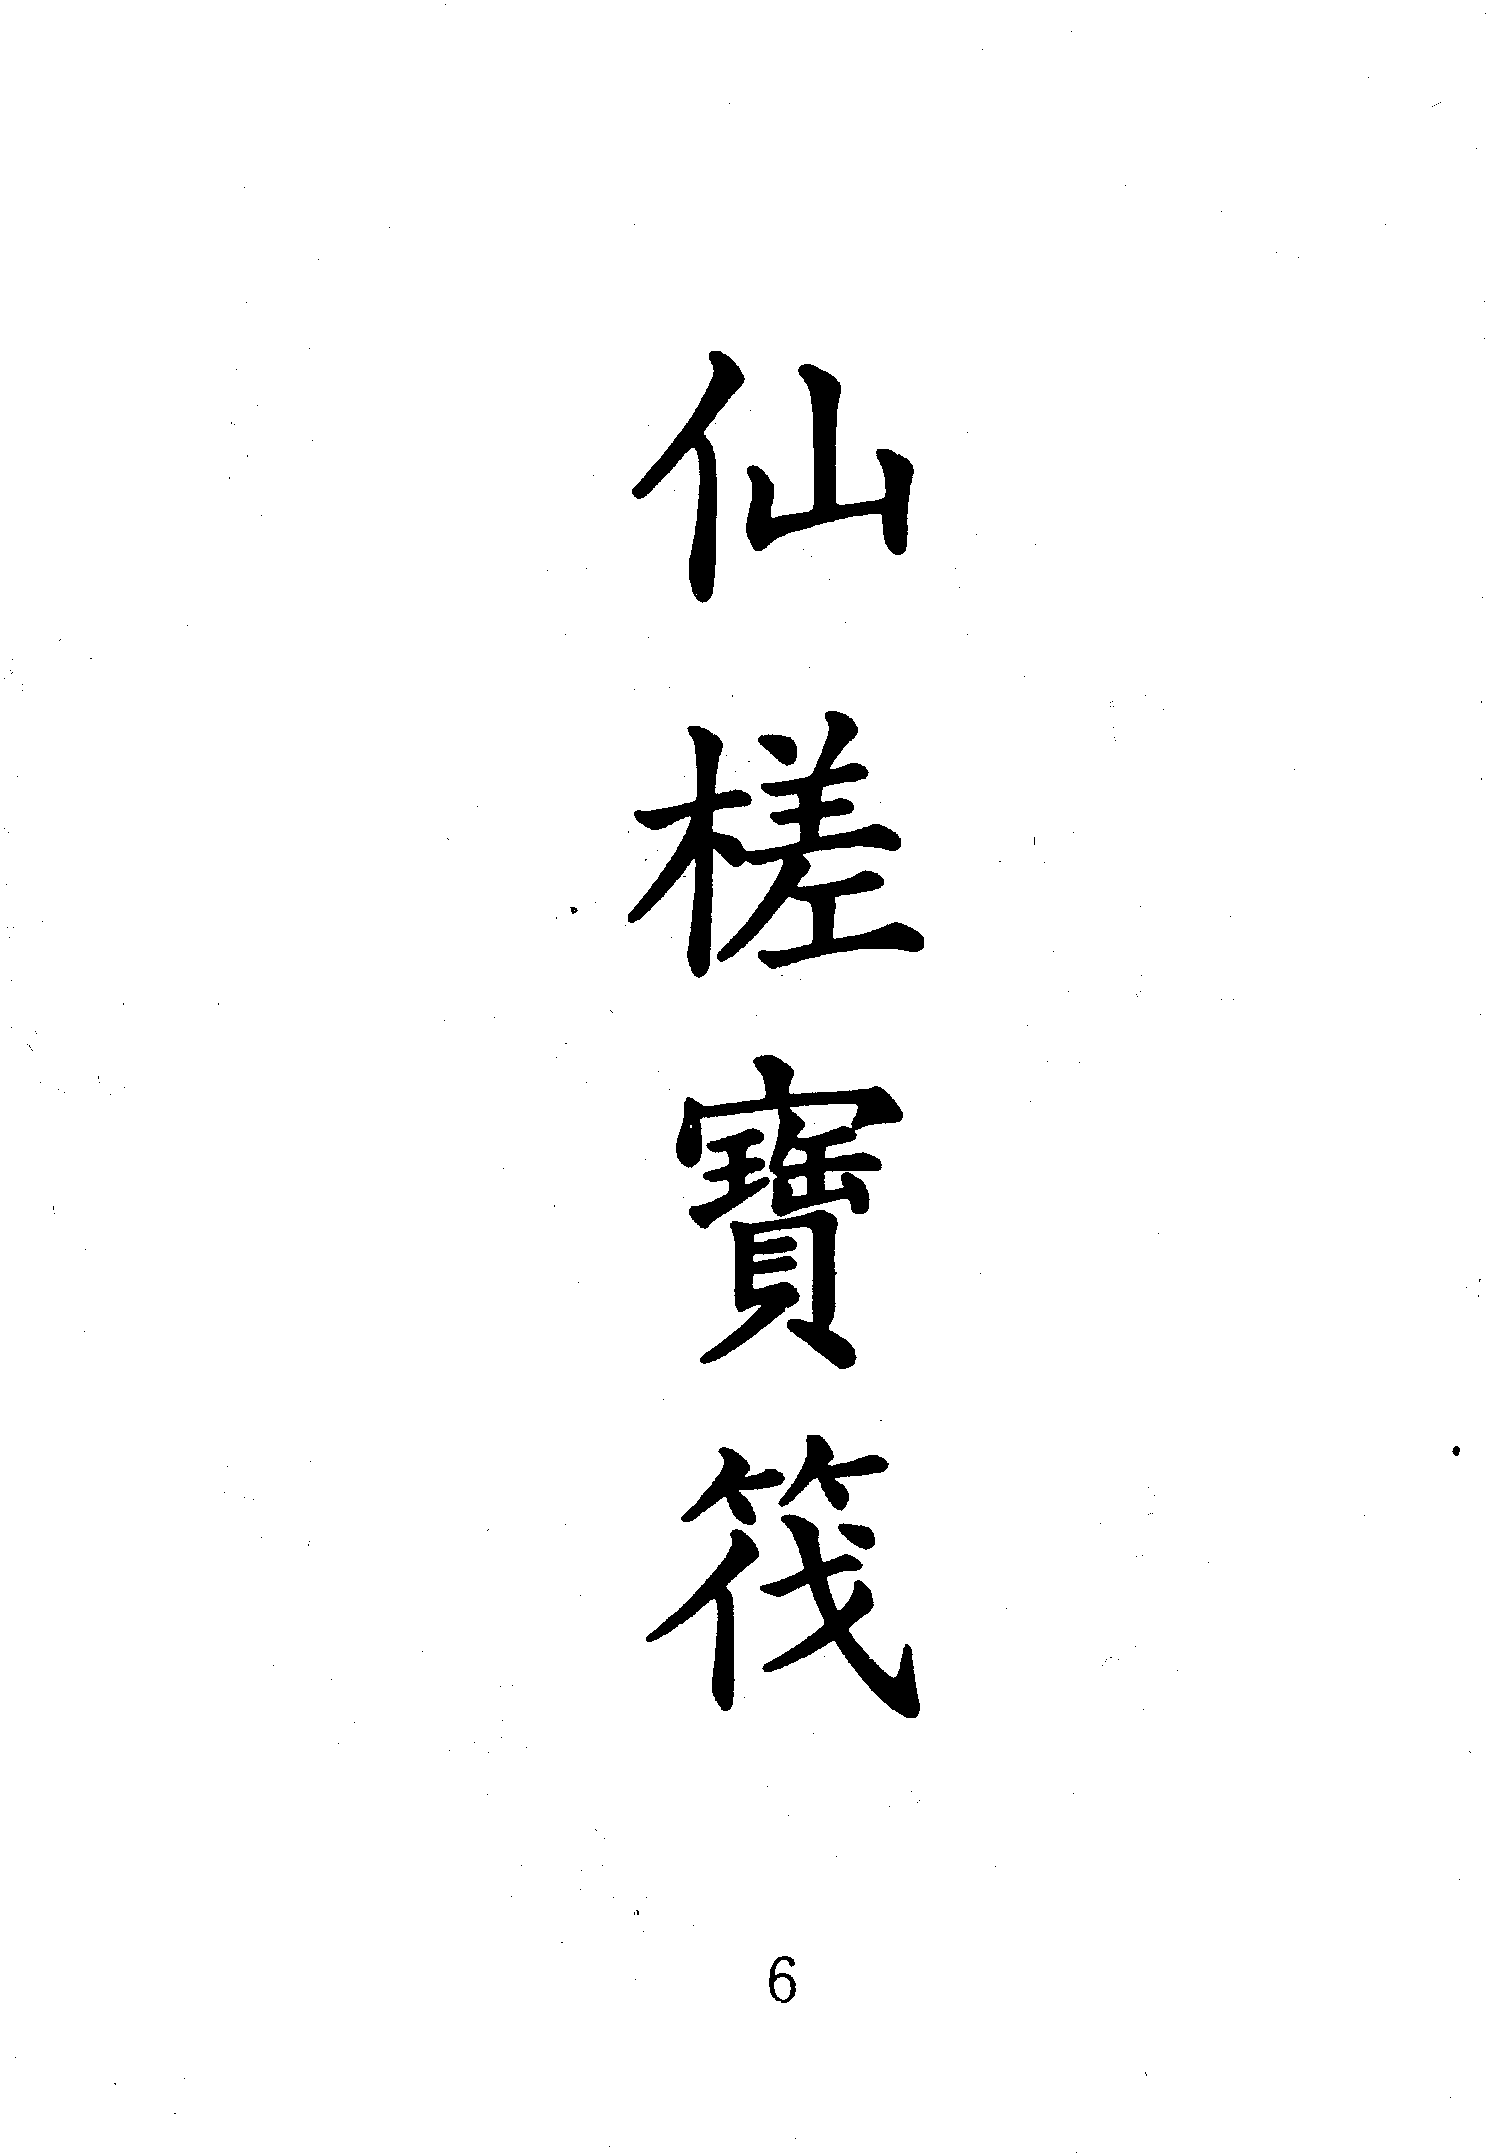 仙槎寶筏
6